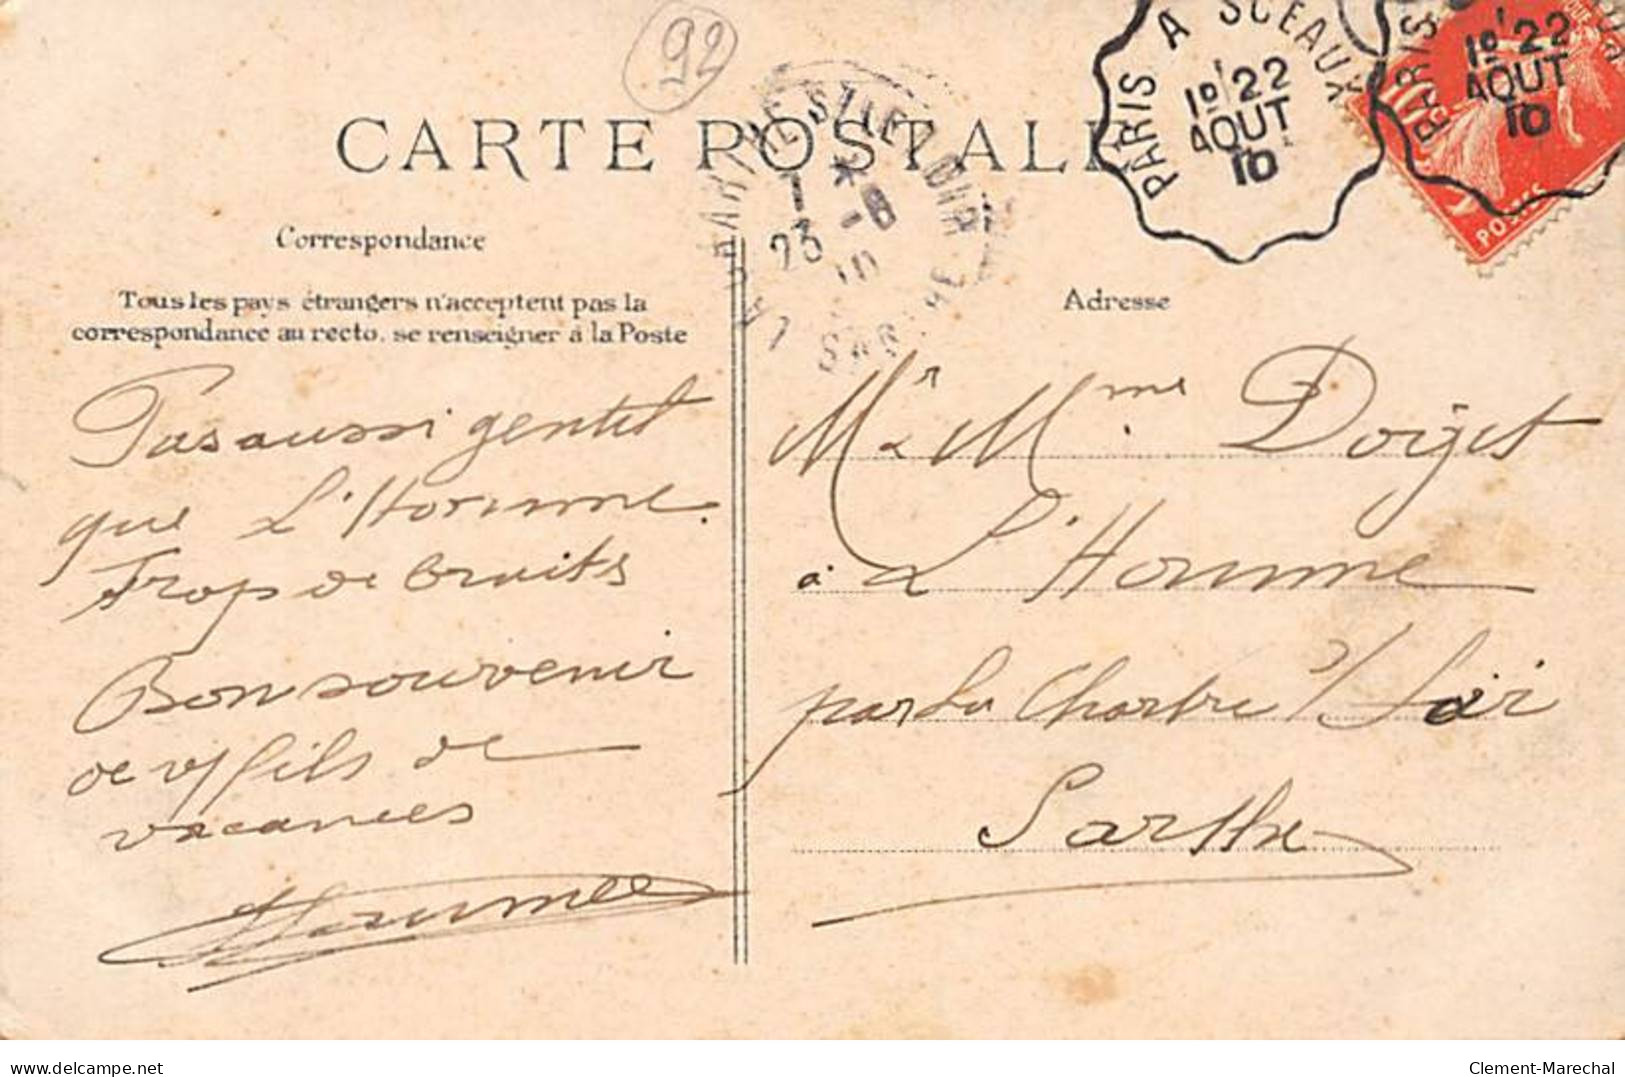 92
CARTE POSTALE
PARIS A SCEAUX
1º 22
AOUT
10
PARIS
1º 22
AOUT
10
POSTES
LA CHARTRE S/LE LOIR
1 *
23 -8
10
SARTHE
Correspondance
Tous les pays étrangers n'acceptent pas la
correspondance au recto, se renseigner à la Poste
Pas aussi gentil
que L'Homme.
Trop de bruits
Bon souvenir
de vs fils de
vacances
Adresse
Mr & Mme Doiget
à L'Homme
par La Chartre s/ Loir
Sarthe
delcampe.net
Clement-Marechal